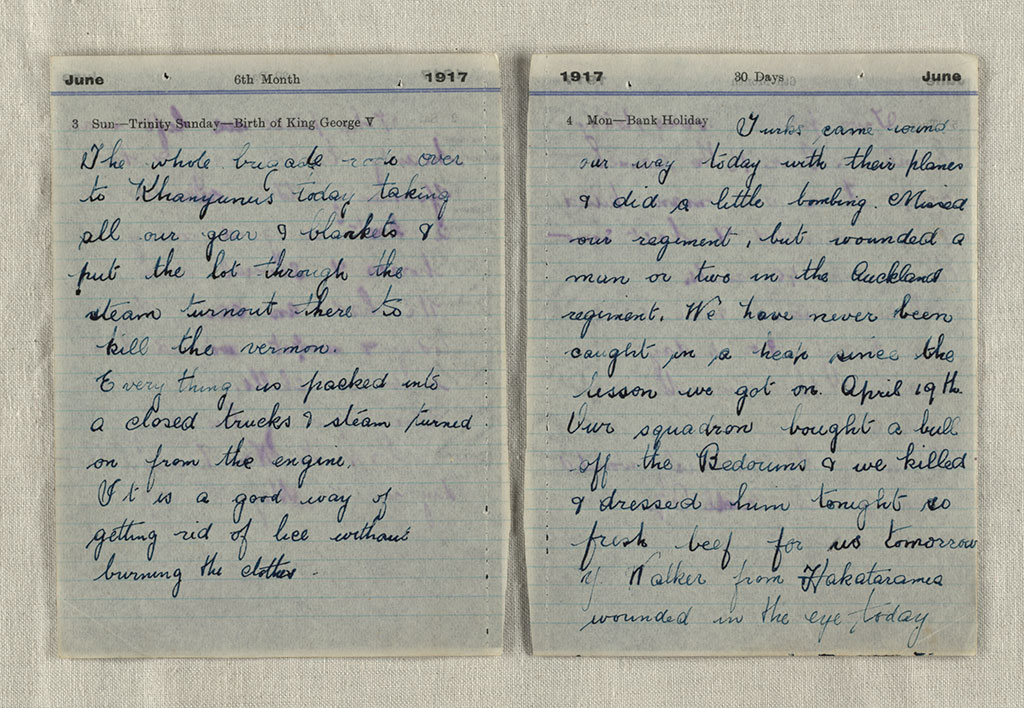 June 6th Month 1917
3 Sun—Trinity Sunday—Birth of King George V
The whole brigade rode over
to Khanyunus today taking
all our gear & blankets &
put the lot through the
steam turnout there to
kill the vermon.
Every thing is packed into
a closed trucks & steam turned
on from the engine.
It is a good way of
getting rid of lice without
burning the clothes.
1917 30 Days June
4 Mon—Bank Holiday Turks came round
our way today with their planes
& did a little bombing. Missed
our regiment, but wounded a
man or two in the Auckland
regiment. We have never been
caught in a heap since the
lesson we got on April 19th.
Our squadron bought a bull
off the Bedouins & we killed
& dressed him tonight so
fresh beef for us tomorrow
Walker from Hakataramea
wounded in the eye today